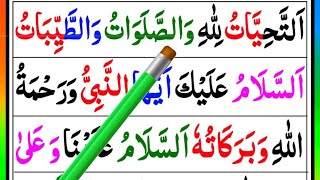 اَلتَّحِيَّاتُ لِلّٰهِ وَالصَّلَوَاتُ وَالطَّيِّبَاتُ
اَلسَّلَامُ عَلَيْكَ اَيُّهَا النَّبِيُّ وَرَحْمَةُ
اللّٰهِ وَبَرَكَاتُهٗ اَلسَّلَامُ عَلَيْنَا وَعَلىٰ